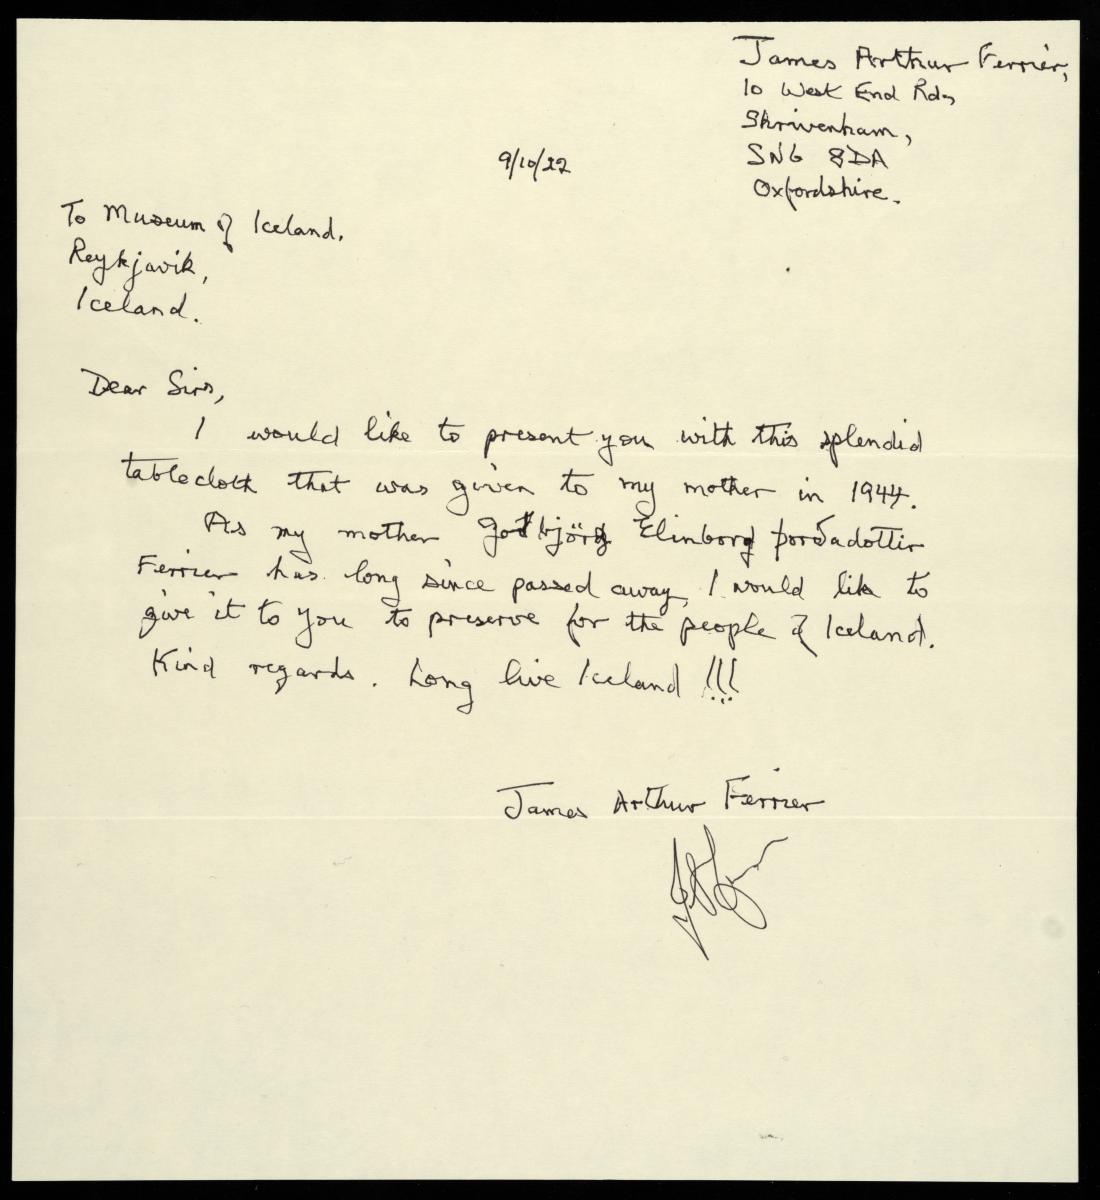 James Arthur Ferrier,
10 West End Rd,
Shrivenham,
SN6 8DA
Oxfordshire.
9/10/22
To Museum of Iceland.
Reykjavik,
Iceland.
Dear Sirs,
I would like to present you with this splendid
tablecloth that was given to my mother in 1944.
As my mother Elinborg þorðadottir
Ferrier has long since passed away, I would like to
give it to you to preserve for the people of Iceland.
Kind regards. Long live Iceland !!!
James Arthur Ferrier